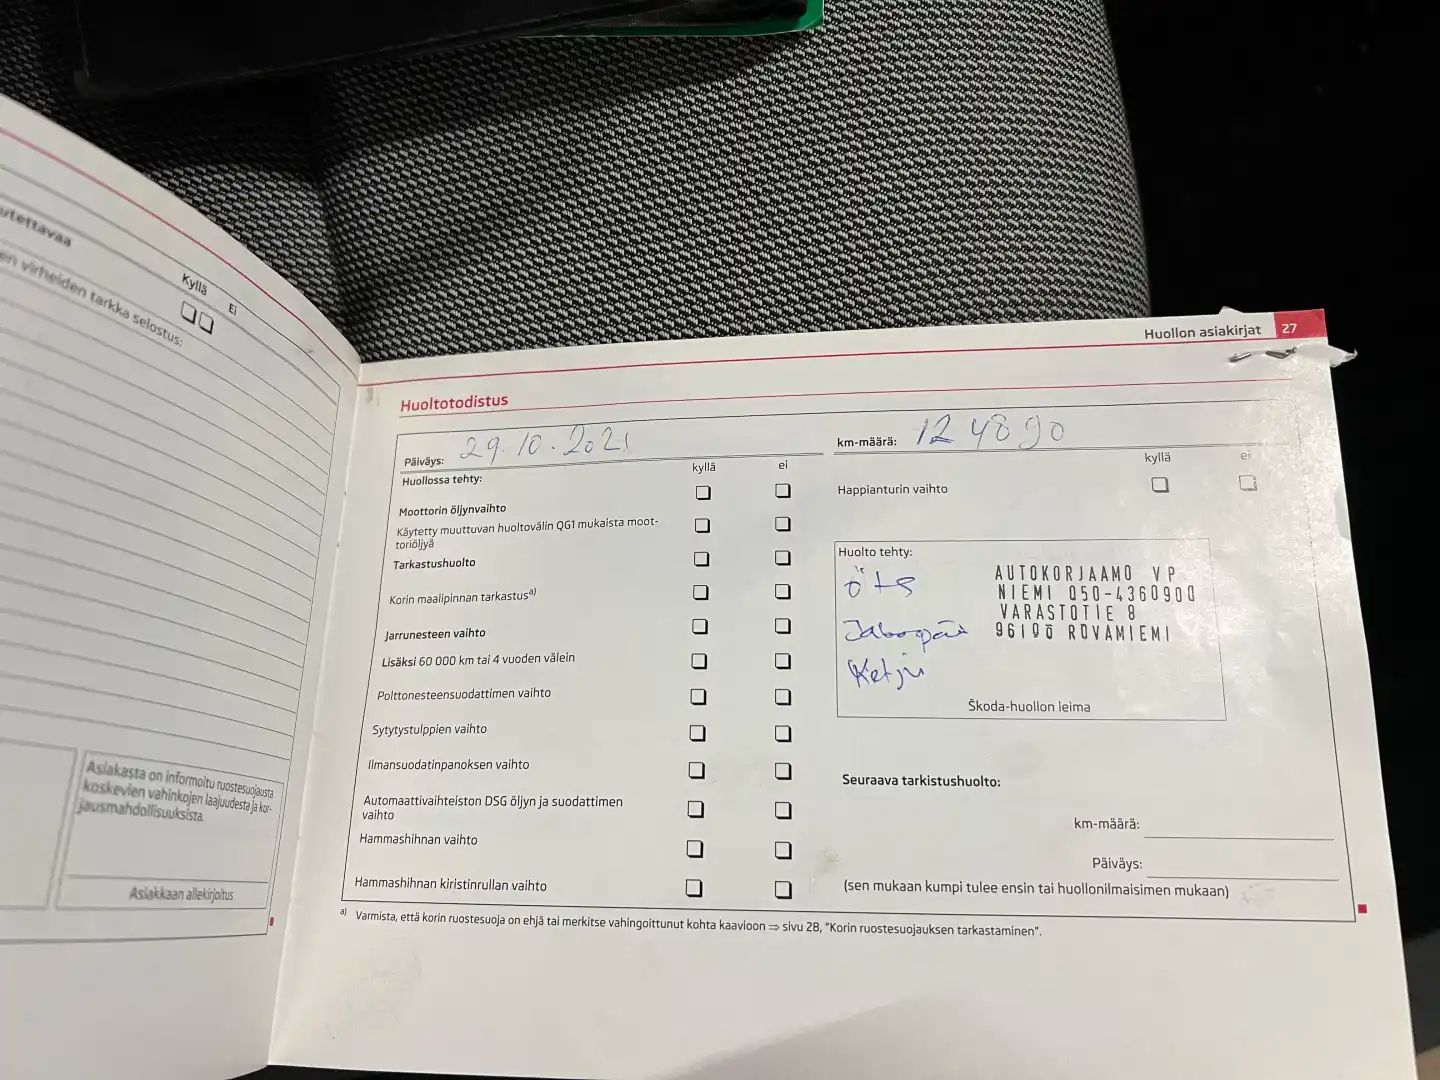 utettavaa
Kyllä Ei
en virheiden tarkka selostus:
Asiakasta on informoitu ruostesuojausta
koskevien vahinkojen laajuudesta ja kor-
jausmahdollisuuksista.
Asiakkaan allekirjoitus
Huollon asiakirjat 27
Huoltotodistus
Päiväys: 29.10.2021
km-määrä: 124890
Huollossa tehty:
kyllä ei
Moottorin öljynvaihto
Käytetty muuttuvan huoltovälin QG1 mukaista moot-
toriöljyä
Tarkastushuolto
Korin maalipinnan tarkastus a)
Jarrunesteen vaihto
Lisäksi 60 000 km tai 4 vuoden välein
Polttonesteensuodattimen vaihto
Sytytystulppien vaihto
Ilmansuodatinpanoksen vaihto
Automaattivaihteiston DSG öljyn ja suodattimen
vaihto
Hammashihnan vaihto
Hammashihnan kiristinrullan vaihto
kyllä ei
Happianturin vaihto
Huolto tehty:
AUTOKORJAAMO VP
NIEMI 050-4360900
VARASTOTIE 8
96100 ROVANIEMI
Ketju
Škoda-huollon leima
Seuraava tarkistushuolto:
km-määrä:
Päiväys:
(sen mukaan kumpi tulee ensin tai huollonilmaisimen mukaan)
a) Varmista, että korin ruostesuoja on ehjä tai merkitse vahingoittunut kohta kaavioon ⇒ sivu 28, "Korin ruostesuojauksen tarkastaminen".